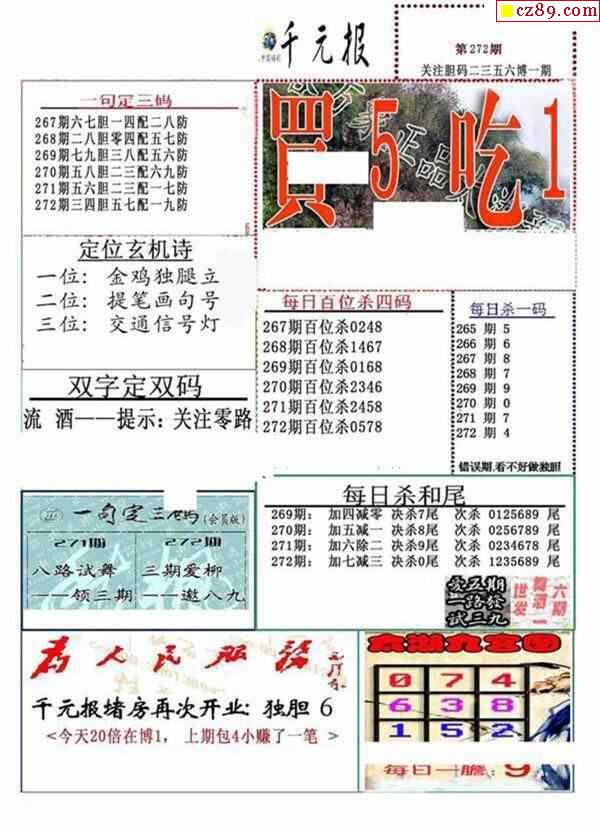 cz89.com
千元报
第272期
关注胆码二三五六博一期
一句定三码
267期六七胆一四配二八防
268期二八胆零四配五七防
269期七九胆三八配五六防
270期五八胆二三配六九防
271期五六胆二三配一七防
272期三四胆五七配一九防
買5吃1
定位玄机诗
一位：金鸡独腿立
二位：提笔画句号
三位：交通信号灯
每日百位杀四码
267期百位杀0248
268期百位杀1467
269期百位杀0168
270期百位杀2346
271期百位杀2458
272期百位杀0578
每日杀一码
265 期 5
266 期 6
267 期 8
268 期 7
269 期 9
270 期 0
271 期 7
272 期 4
错误期,看不好做独胆
双字定双码
流 酒——提示：关注零路
一句定三码(会员版)
271期
八路试舞
——领三期
272期
三期爱柳
——邀八九
每日杀和尾
269期： 加四减零 决杀7尾 次杀 0125689 尾
270期： 加五减一 决杀8尾 次杀 0256789 尾
271期： 加六除二 决杀9尾 次杀 0234678 尾
272期： 加七减三 决杀0尾 次杀 1235689 尾
为人民服务
千元报堵房再次开业：独胆 6
<今天20倍在博1， 上期包4小赚了一笔 >
太湖九宫图
0 7 4
6 3 8
1 5 2
每日一膽： 9